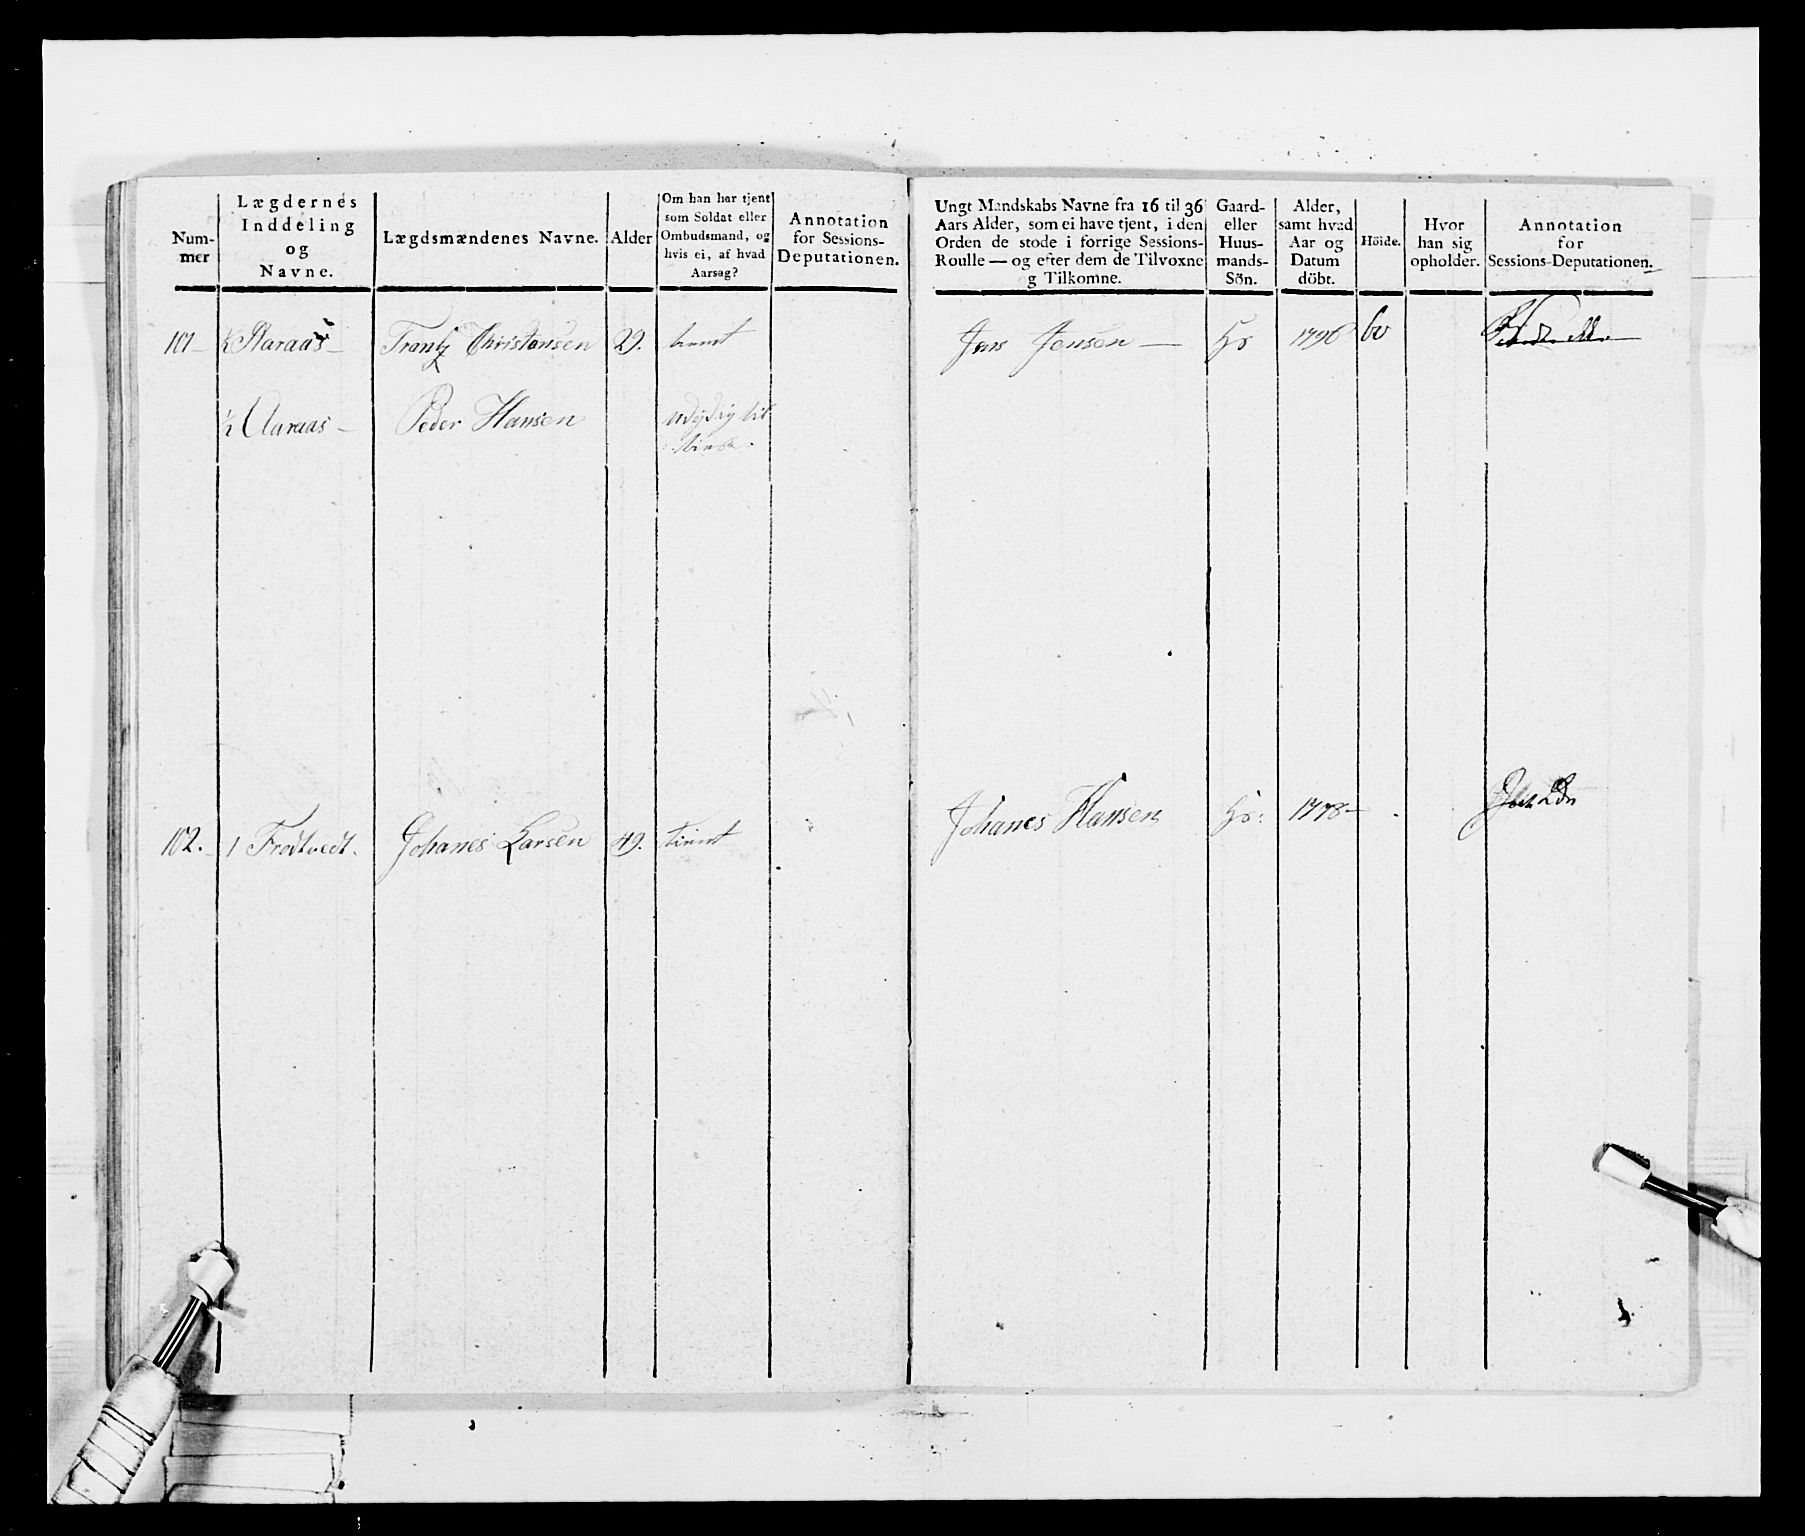 Num-
mer
Lægdernes
Inddeling
og
Navne.
Lægdsmændenes Navne.
Alder
Om han har tjent
som Soldat eller
Ombudsmand, og
hvis ei, af hvad
Aarsag?
Annotation
for Sessions-
Deputationen.
101 — ½ Aaraas — Frantz Christensen 29. tient
½ Aaraas — Peder Hansen udygtig til
tieste.
102. 1 Frodtvedt. Johanes Larsen 49. tient
Ungt Mandskabs Navne fra 16 til 36
Aars Alder, som ei have tjent, i den
Orden de stode i forrige Sessions-
Roulle — og efter dem de Tilvoxne
g Tilkomne.
Gaard-
eller
Huus-
mands-
Sön.
Alder,
samt hvad
Aar og
Datum
döbt.
Höide.
Hvor
han sig
opholder.
Annotation
for
Sessions-Deputationen.
Jens Jensen — Gs 1796 60
Johanes Hansen Gs. 1778 —